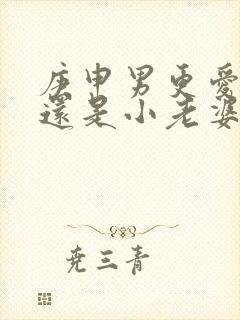 庚申男更愛
還是小老婆
尭三青